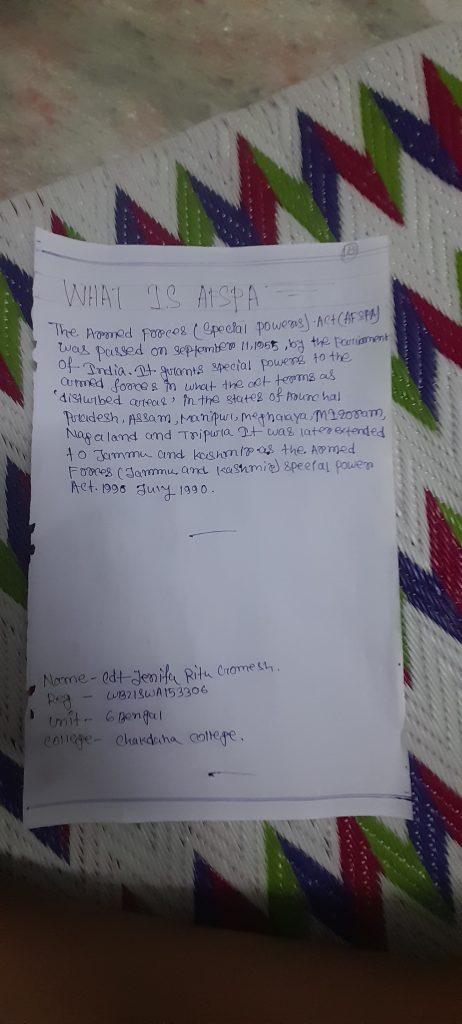 WHAT IS AFSPA
The Armed Forces (Special powers) Act (AFSPA)
was passed on september 11, 1958, by the Parliament
of India. It grants special powers to the
armed forces in what the act terms as
"disturbed areas" in the states of Arunchal
Pradesh, Assam, Manipur, Meghalaya, Mizoram,
Nagaland and Tripura It was later extended
to Jammu and kashmir as the Armed
Forces (Jammu and Kashmir) special power
Act. 1990 July 1990.
Name - Cdt Jenifa Ritu Gomesh.
Reg - WB21SWA153306
Unit - 6 Bengal
College - Chakdaha College.